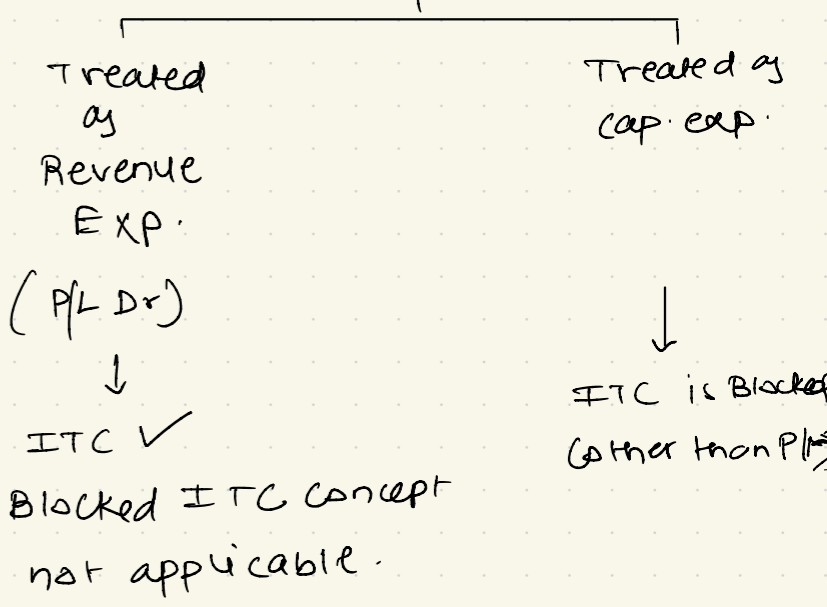 Treated
as
Revenue
Exp.
(P/L Dr)
ITC ✓
Blocked ITC concept
not applicable.
Treated as
cap. exp.
ITC is Blocked
(other than P/M)